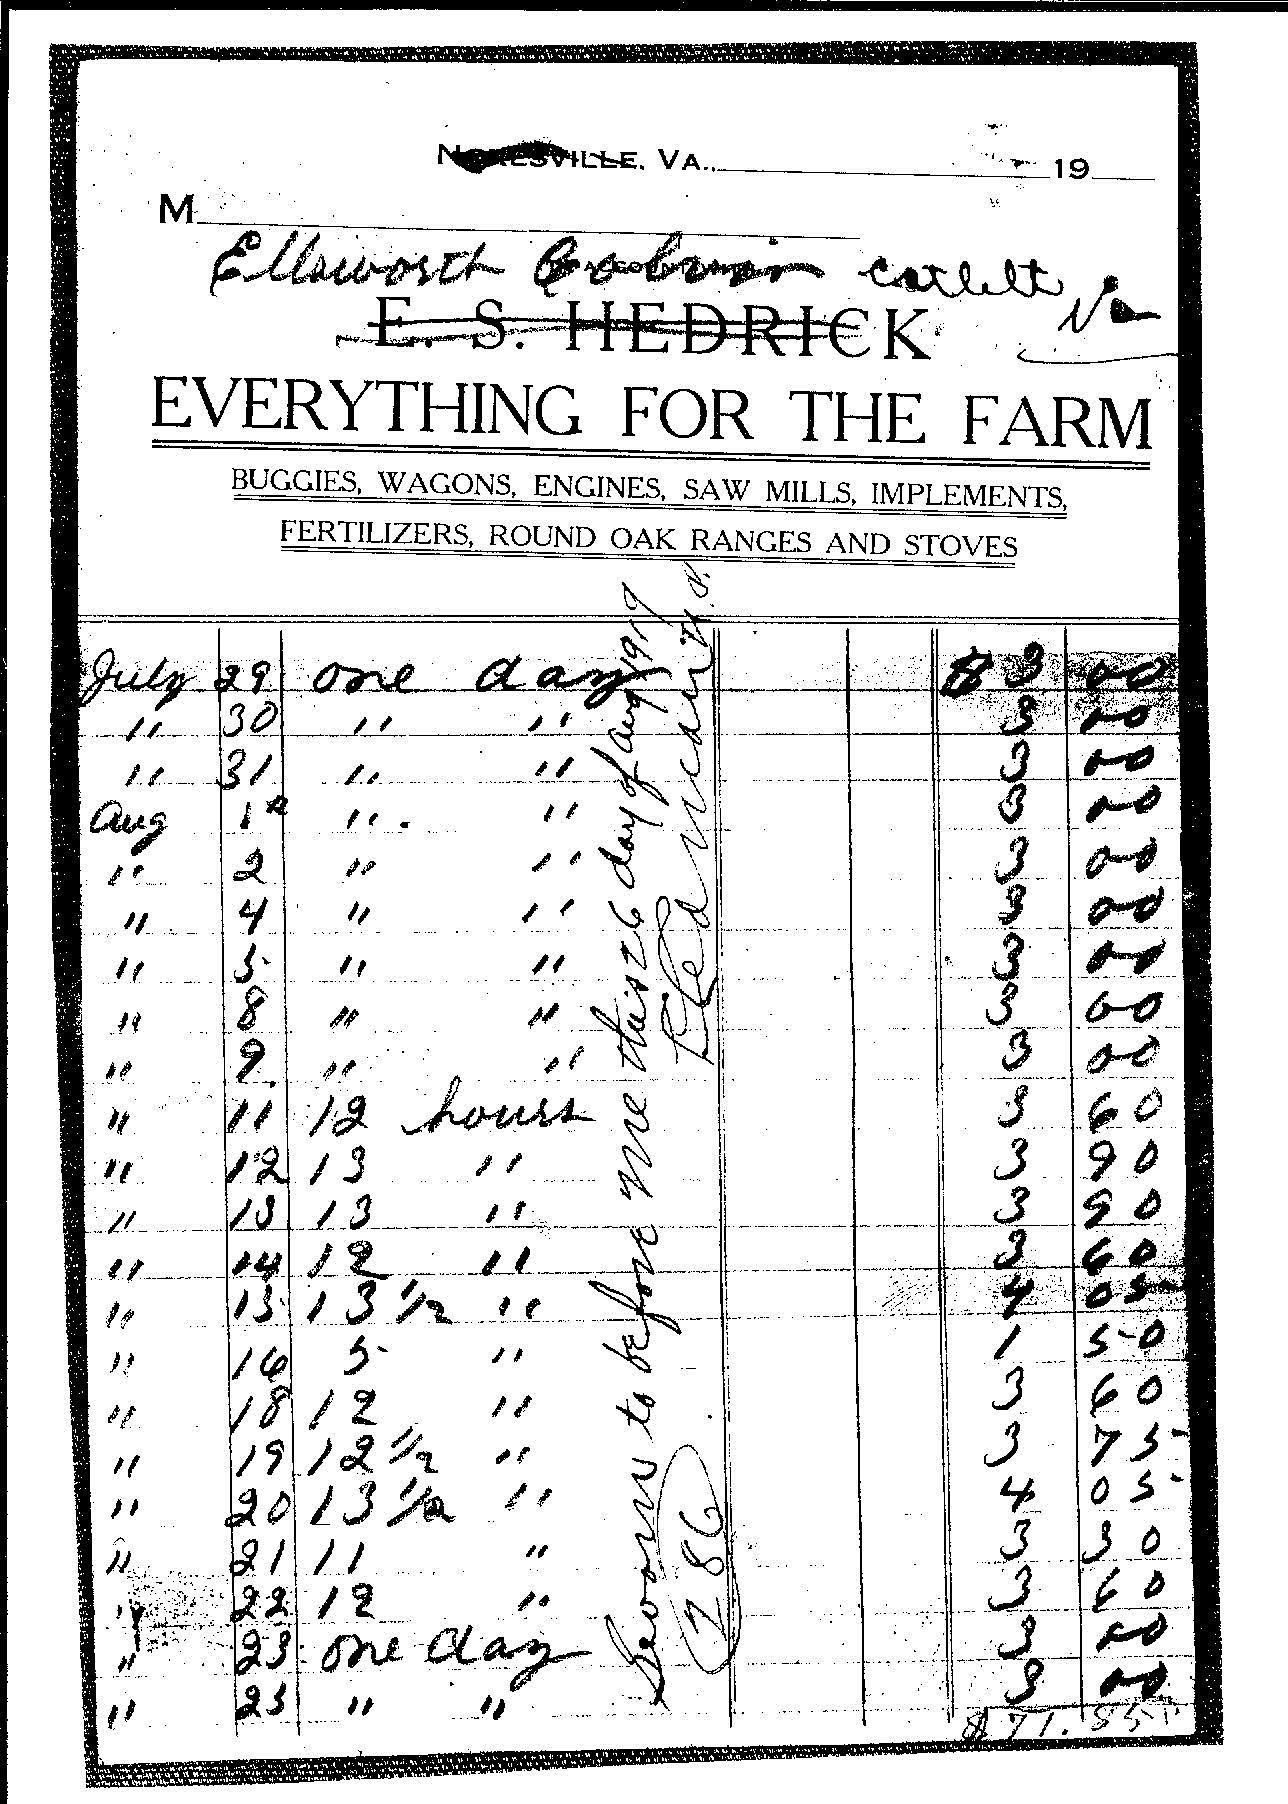 NOKESVILLE, VA., 19
M
Ellsworth Catlett Va
E. S. HEDRICK
EVERYTHING FOR THE FARM
BUGGIES, WAGONS, ENGINES, SAW MILLS, IMPLEMENTS,
FERTILIZERS, ROUND OAK RANGES AND STOVES
July 29 one day $3 00
" 30 " " 3 00
" 31 " " 3 00
Aug 1st " " 3 00
" 2 " " 3 00
" 4 " " 3 00
" 5 " " 3 00
" 8 " " 3 00
" 9 " " 3 00
" 11 12 hours 3 60
" 12 13 " 3 90
" 13 13 " 3 90
" 14 12 " 3 60
" 15 13 1/2 " 4 05
" 16 5 " 1 50
" 18 12 " 3 60
" 19 12 1/2 " 3 75
" 20 13 1/2 " 4 05
" 21 11 " 3 30
" 22 12 " 3 60
" 23 one day 3 00
" 25 " " 3 00
$71.85
Sworn to before me this 26 day of Aug 1919
286